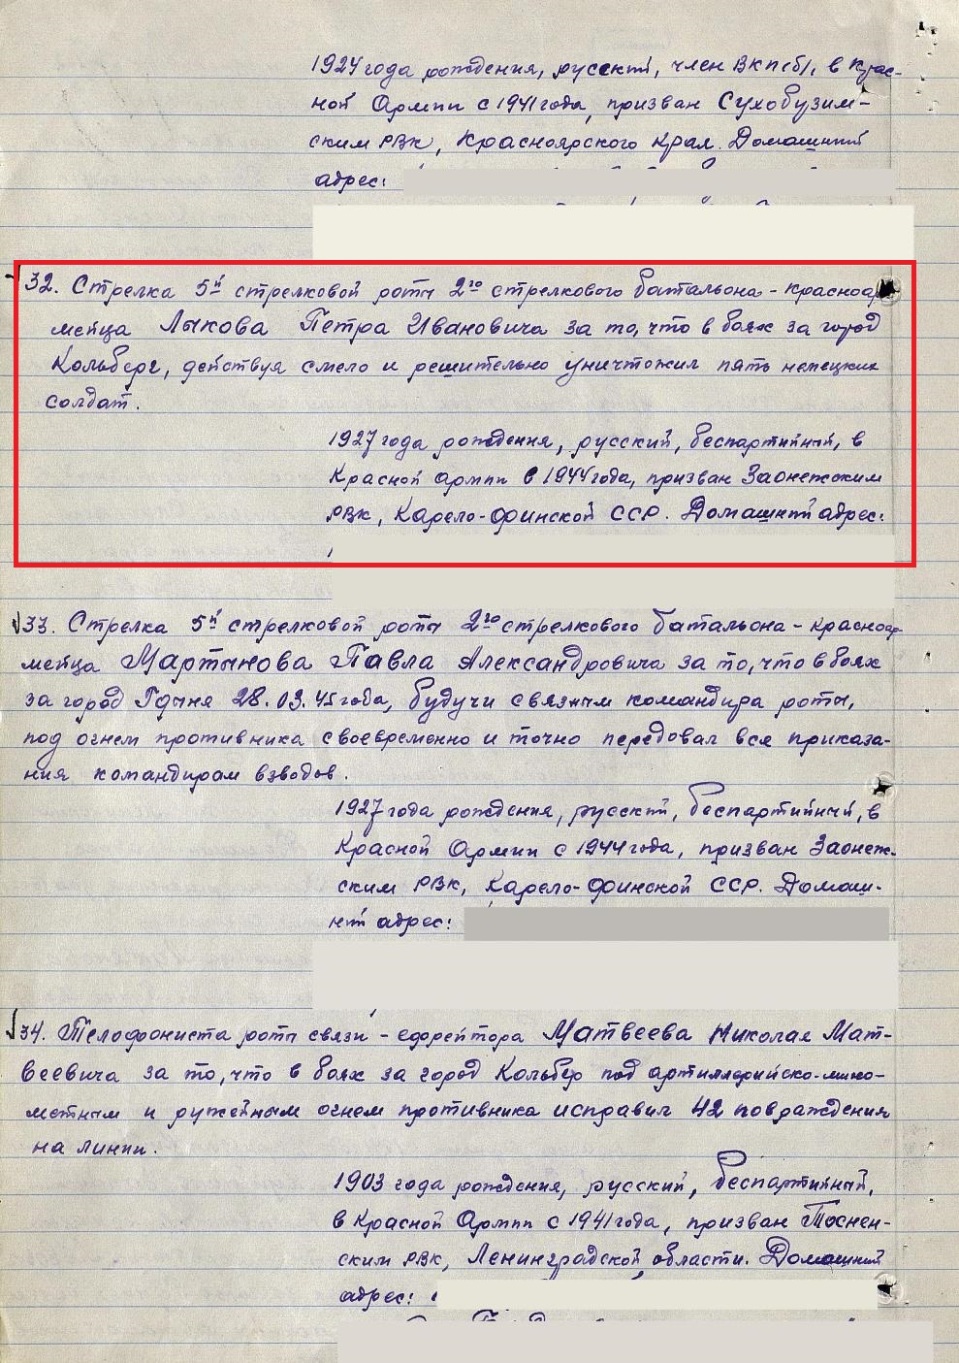 1924 года рождения, русский, член ВКП(б), в Крас-
ной Армии с 1941 года, призван Сухобузим-
ским РВК, Красноярского Края. Домашний
адрес:
32. Стрелка 5й стрелковой роты 2го стрелкового батальона - красноар-
мейца Лыкова Петра Ивановича за то, что в боях за город
Кольберг, действуя смело и решительно уничтожил пять немецких
солдат.
1927 года рождения, русский, беспартийный, в
Красной Армии с 1944 года, призван Заонежским
РВК, Карело-Финской ССР. Домашний адрес:
33. Стрелка 5й стрелковой роты 2го стрелкового батальона - красноар-
мейца Мартынова Павла Александровича за то, что в боях
за город Гдыня 28.03.45 года, будучи связным командира роты,
под огнем противника своевременно и точно передовал все приказа-
ния командирам взводов.
1927 года рождения, русский, беспартийный, в
Красной Армии с 1944 года, призван Заонеж-
ским РВК, Карело-Финской ССР. Домаш-
ний адрес:
34. Телефониста роты связи - ефрейтора Матвеева Николая Мат-
веевича за то, что в боях за город Кольбер под артиллерийско-мино-
метным и ружейным огнем противника исправил 42 повраждения
на линии.
1903 года рождения, русский, беспартийный,
в Красной Армии с 1941 года, призван Тоснен-
ским РВК, Ленинградской области. Домашний
адрес: